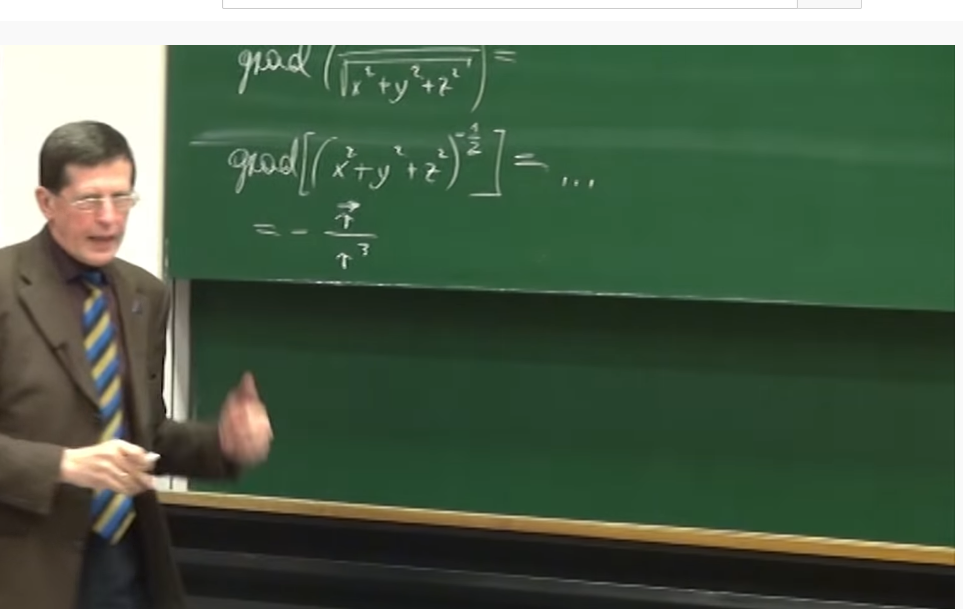 grad (1/√(x²+y²+z²)) =
grad[(x²+y²+z²)^(-1/2)] = ...
= - r⃗/r³